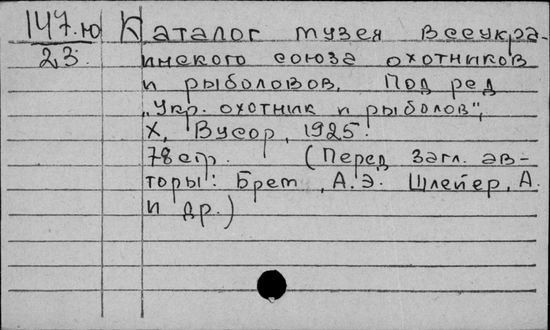 147.ю Каталог музея Всеукра-
23. инского союза охотников
и рыболовов. Под ред
„Укр. охотник и рыболов",
Х, Вусор, 1925.
78стр. (Перед загл. ав-
торы: Брет, А.Э. Шлейер, А.
и др.)